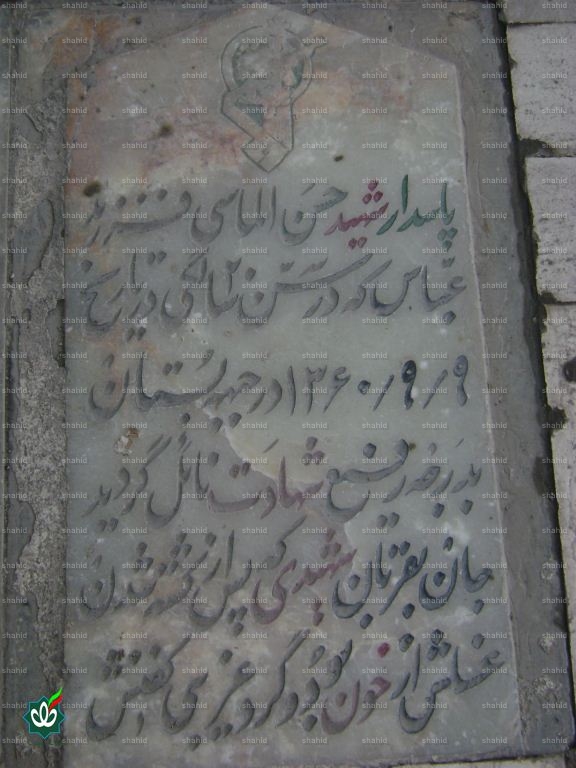 پاسدار شهید حسن الماسی فرزند
عباس که در سن ۲۰ سالگی در تاریخ
۱۳۶۰/۹/۹ در جبهه بستان
بدرجه رفیع شهادت نائل گردید
جان بقربان شهیدی که پس از کشته شدن
از خون بود و گرد زمین کفنش